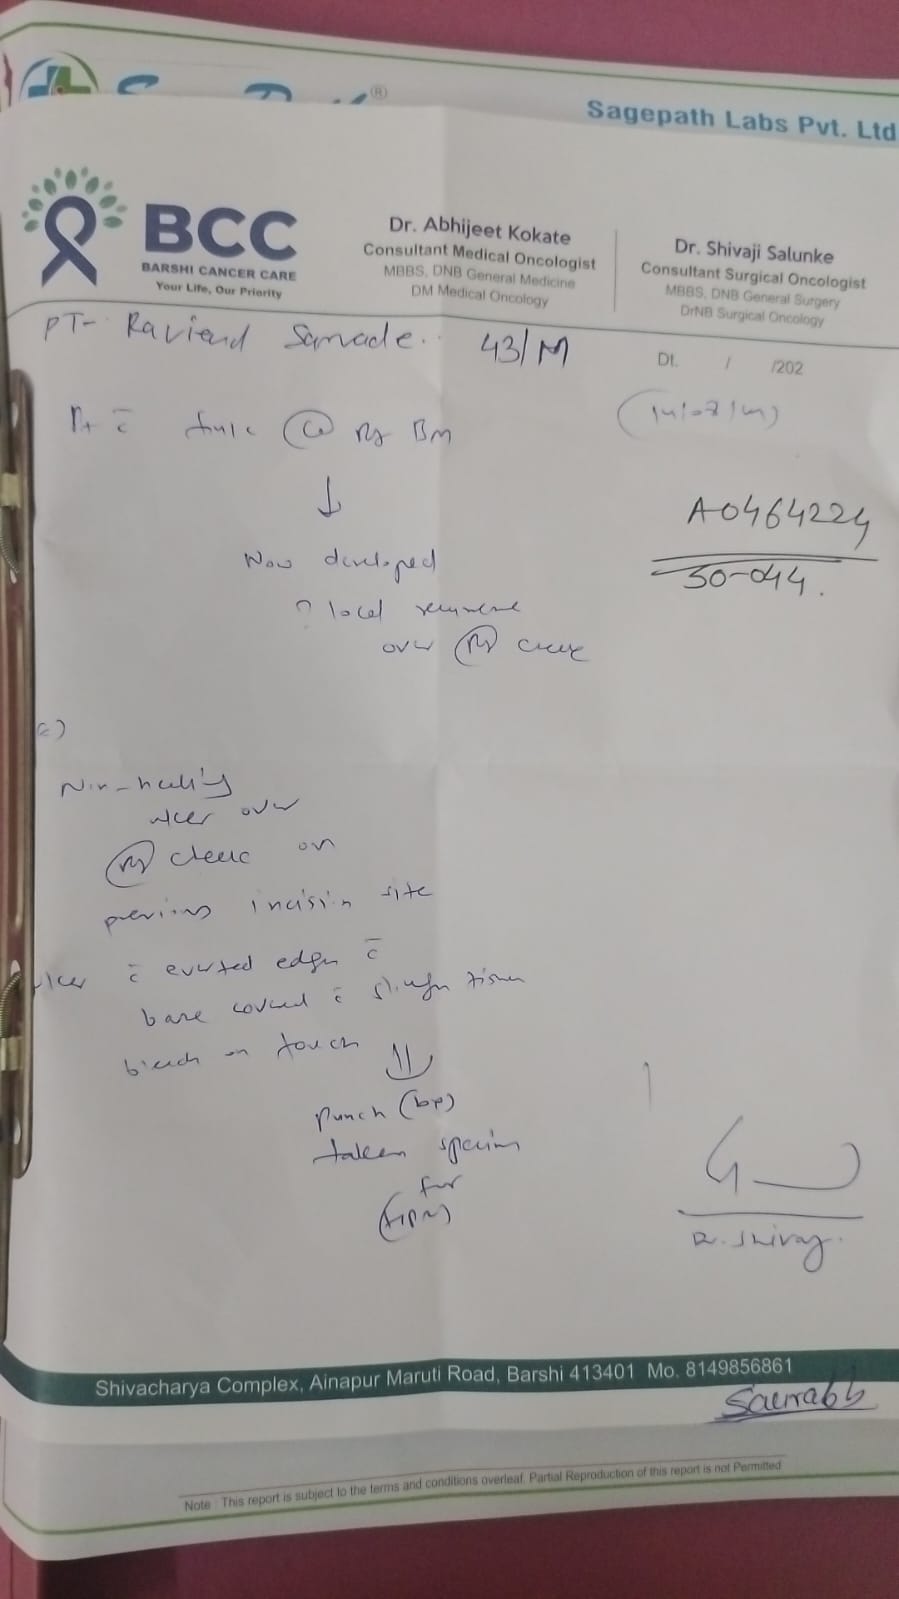 Sagepath Labs Pvt. Ltd
®
BCC
BARSHI CANCER CARE
Your Life, Our Priority
Dr. Abhijeet Kokate
Consultant Medical Oncologist
MBBS, DNB General Medicine
DM Medical Oncology
Dr. Shivaji Salunke
Consultant Surgical Oncologist
MBBS, DNB General Surgery
DrNB Surgical Oncology
PT- 43/M
Dt. / /202
BM
A0464224
30-044.
Now developed
? local
over cheek
Non-healing
ulcer over
cheek on
previous incision site
ulcer c̄ everted edge c̄
base covered c̄ slough tissue
bleeds on touch
punch (bx)
taken
for
Dr. Shivaji
Shivacharya Complex, Ainapur Maruti Road, Barshi 413401 Mo. 8149856861
Saurabh
Note : This report is subject to the terms and conditions overleaf. Partial Reproduction of this report is not Permitted